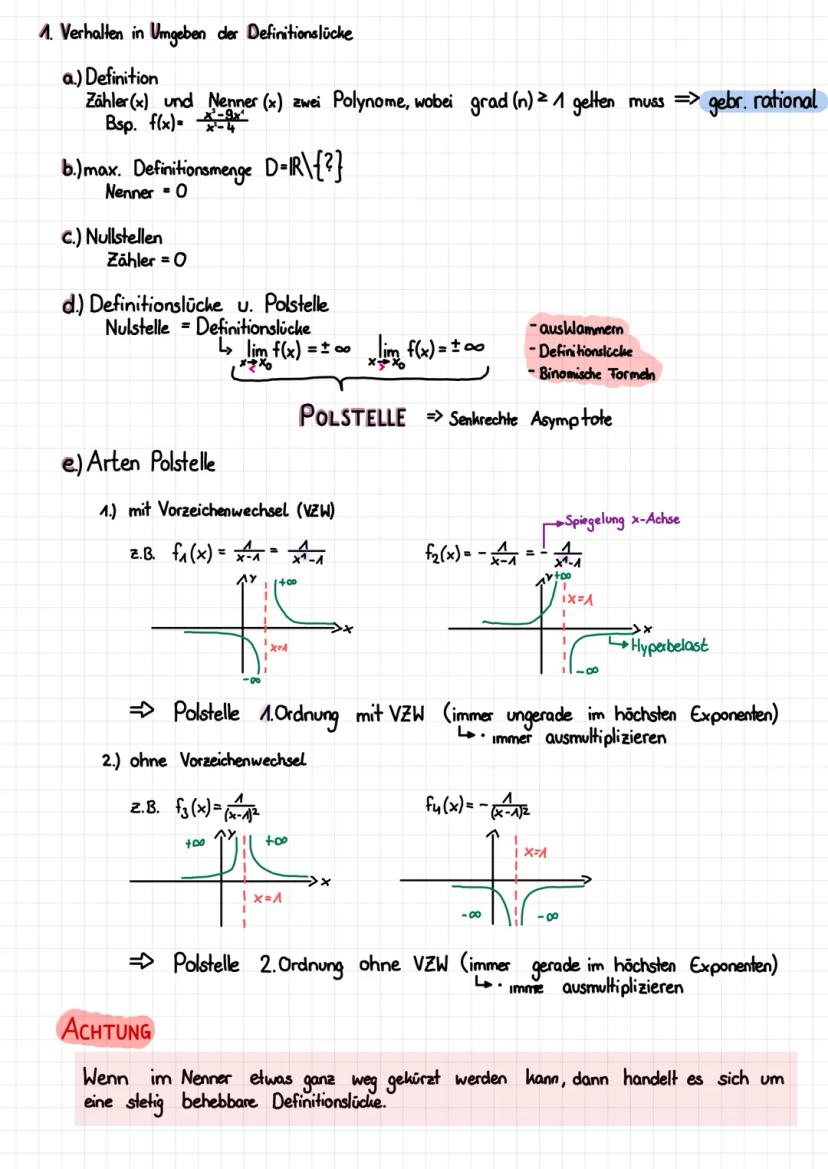 1. Verhalten in Umgeben der Definitionslücke
a.) Definition
Zähler(x) und Nenner (x) zwei Polynome, wobei grad (n) ≥ 1 gelten muss => gebr. rational
Bsp. f(x) =
b.) max. Definitionsmenge D=ℝ\{?}
Nenner = 0
c.) Nullstellen
Zähler = 0
d.) Definitionslücke u. Polstelle
Nulstelle = Definitionslücke
↳ lim f(x) = ± ∞ lim f(x) = ± ∞
x→x₀ x→x₀
- ausklammern
- Definitionslücke
- Binomische Formeln
POLSTELLE => Senkrechte Asymptote
e.) Arten Polstelle
1.) mit Vorzeichenwechsel (VZW)
Spiegelung x-Achse
z.B. f₁(x) = 1/(x-1) = 1/(x¹-1) f₂(x) = - 1/(x-1) = - 1/(x¹-1)
y +∞ x x=1 -∞
y +∞ x=1 x Hyperbelast -∞
=> Polstelle 1.Ordnung mit VZW (immer ungerade im höchsten Exponenten)
↳ · immer ausmultiplizieren
2.) ohne Vorzeichenwechsel
z.B. f₃(x) = 1/(x-1)² f₄(x) = - 1/(x-1)²
+∞ y +∞ x x=1
x=1 -∞ -∞
=> Polstelle 2.Ordnung ohne VZW (immer gerade im höchsten Exponenten)
↳ · imme ausmultiplizieren
ACHTUNG
Wenn im Nenner etwas ganz weg gekürzt werden kann, dann handelt es sich um
eine stetig behebbare Definitionslücke.